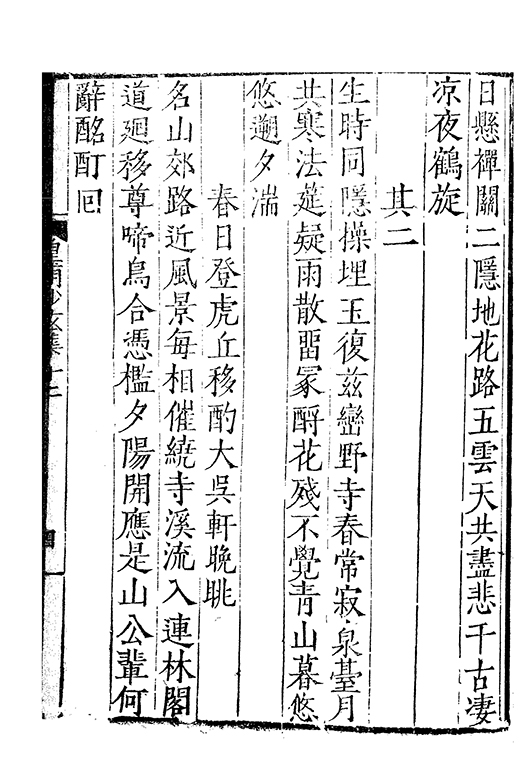 日懸禪關二隱地花路五雲天共盡悲千古凄
凉夜鶴旋
其二
生時同隱操埋玉復兹巒野寺春常寂泉臺月
共寒法筵疑雨散畱冢酹花殘不覺青山暮悠
悠遡夕湍
春日登虎丘移酌大吳軒晚眺
名山郊路近風景每相催繞寺溪流入連林閣
道廻移尊啼鳥合憑檻夕陽開應是山公輩何
辭酩酊囘
皇明
集十二
四